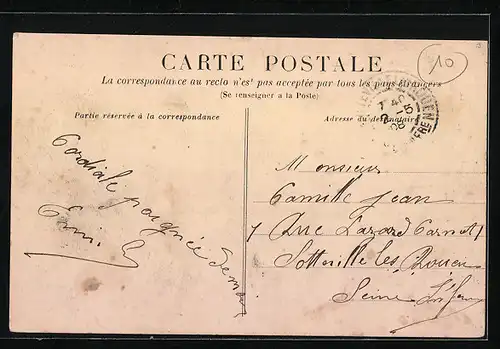 CARTE POSTALE
10
La correspondance au recto n'est pas acceptée par tous les pays étrangers
(Se renseigner à la Poste)
Partie réservée à la correspondance
Adresse du destinataire
Cordiale poignée de main
Monsieur
Camille Jean
Rue Lazard Carnot
Sotteville les Rouen
Seine Infre